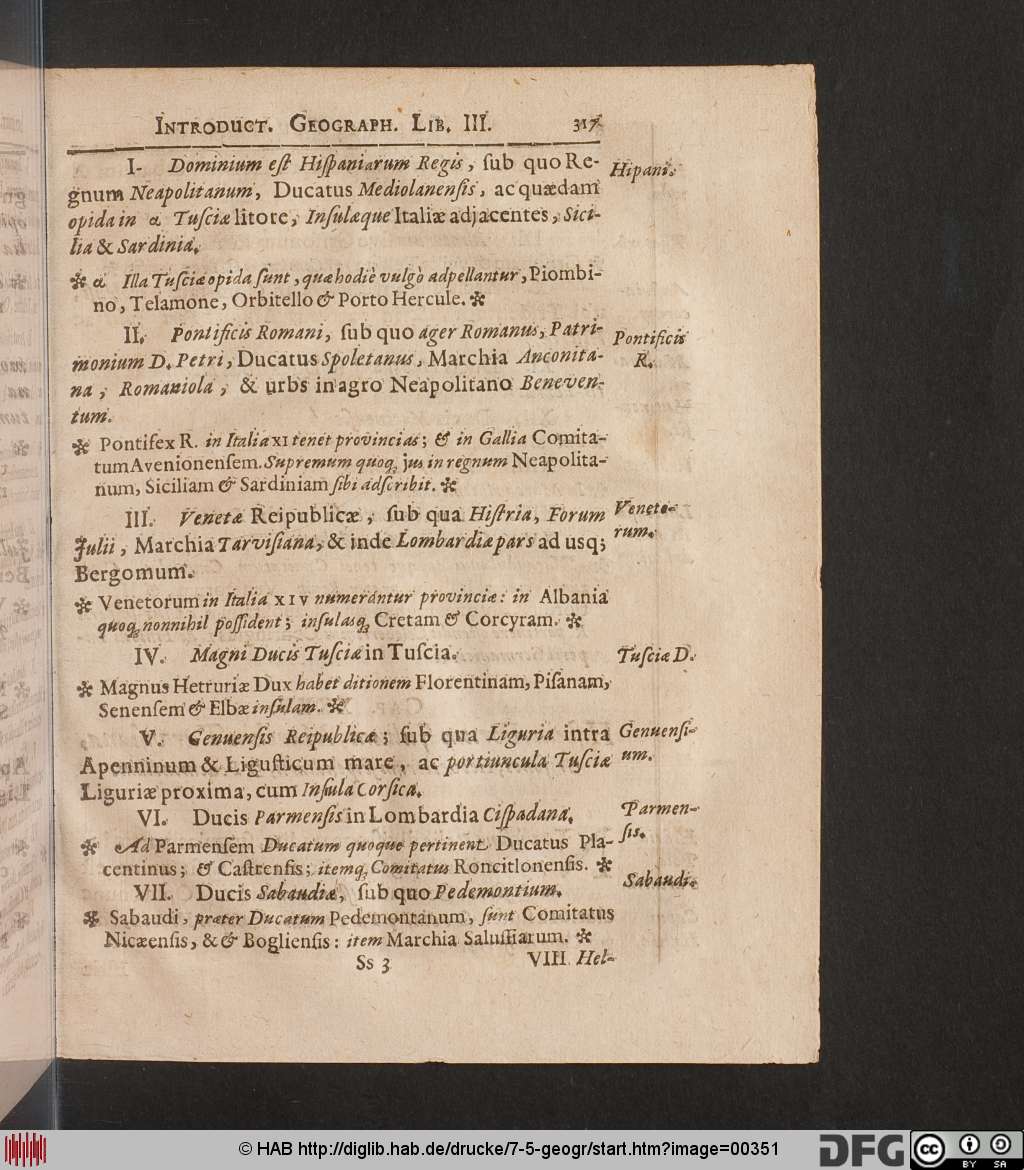 INTRODUCT. GEOGRAPH. LIB. III. 317
I. Dominium eſt Hiſpaniarum Regis, ſub quo Re- Hiſpani.
gnum Neapolitanum, Ducatus Mediolanenſis, ac quædam
opida in α Tuſciæ litore, Inſulæque Italiæ adjacentes, Sici-
lia & Sardinia.
* α Illa Tuſciæ opida ſunt, quæ hodiè vulgò adpellantur, Piombi-
no, Telamone, Orbitello & Porto Hercule. *
II. Pontificis Romani, ſub quo ager Romanus, Patri- Pontificis
monium D. Petri, Ducatus Spoletanus, Marchia Anconita- R.
na, Romaniola, & urbs in agro Neapolitano Beneven-
tum.
* Pontifex R. in Italia XI tenet provincias; & in Gallia Comita-
tum Avenionenſem. Supremum quoq; jus in regnum Neapolita-
num, Siciliam & Sardiniam ſibi adſcribit. *
III. Venetæ Reipublicæ, ſub qua Hiſtria, Forum Veneto-
Julii, Marchia Tarviſiana, & inde Lombardiæ pars ad uſq; rum.
Bergomum.
* Venetorum in Italia XIV numerantur provinciæ: in Albania
quoq; nonnihil poſſident; inſulasq; Cretam & Corcyram. *
IV. Magni Ducis Tuſciæ in Tuſcia. Tuſciæ D.
* Magnus Hetruriæ Dux habet ditionem Florentinam, Piſanam,
Senenſem & Elbæ inſulam. *
V. Genuenſis Reipublicæ; ſub qua Liguria intra Genuenſi-
Apenninum & Liguſticum mare, ac portiuncula Tuſciæ um.
Liguriæ proxima, cum Inſula Corſica.
VI. Ducis Parmenſis in Lombardia Ciſpadana. Parmen-
ſis.
* Ad Parmenſem Ducatum quoque pertinent Ducatus Pla-
centinus; & Caſtrenſis; itemq; Comitatus Roncitlonenſis. *
VII. Ducis Sabaudiæ, ſub quo Pedemontium. Sabaudi.
* Sabaudi, præter Ducatum Pedemontanum, ſunt Comitatus
Nicæenſis, & & Boglienſis: item Marchia Saluſſiarum. *
Ss 3 VIII. Hel-
© HAB http://diglib.hab.de/drucke/7-5-geogr/start.htm?image=00351
DFG
cc BY SA